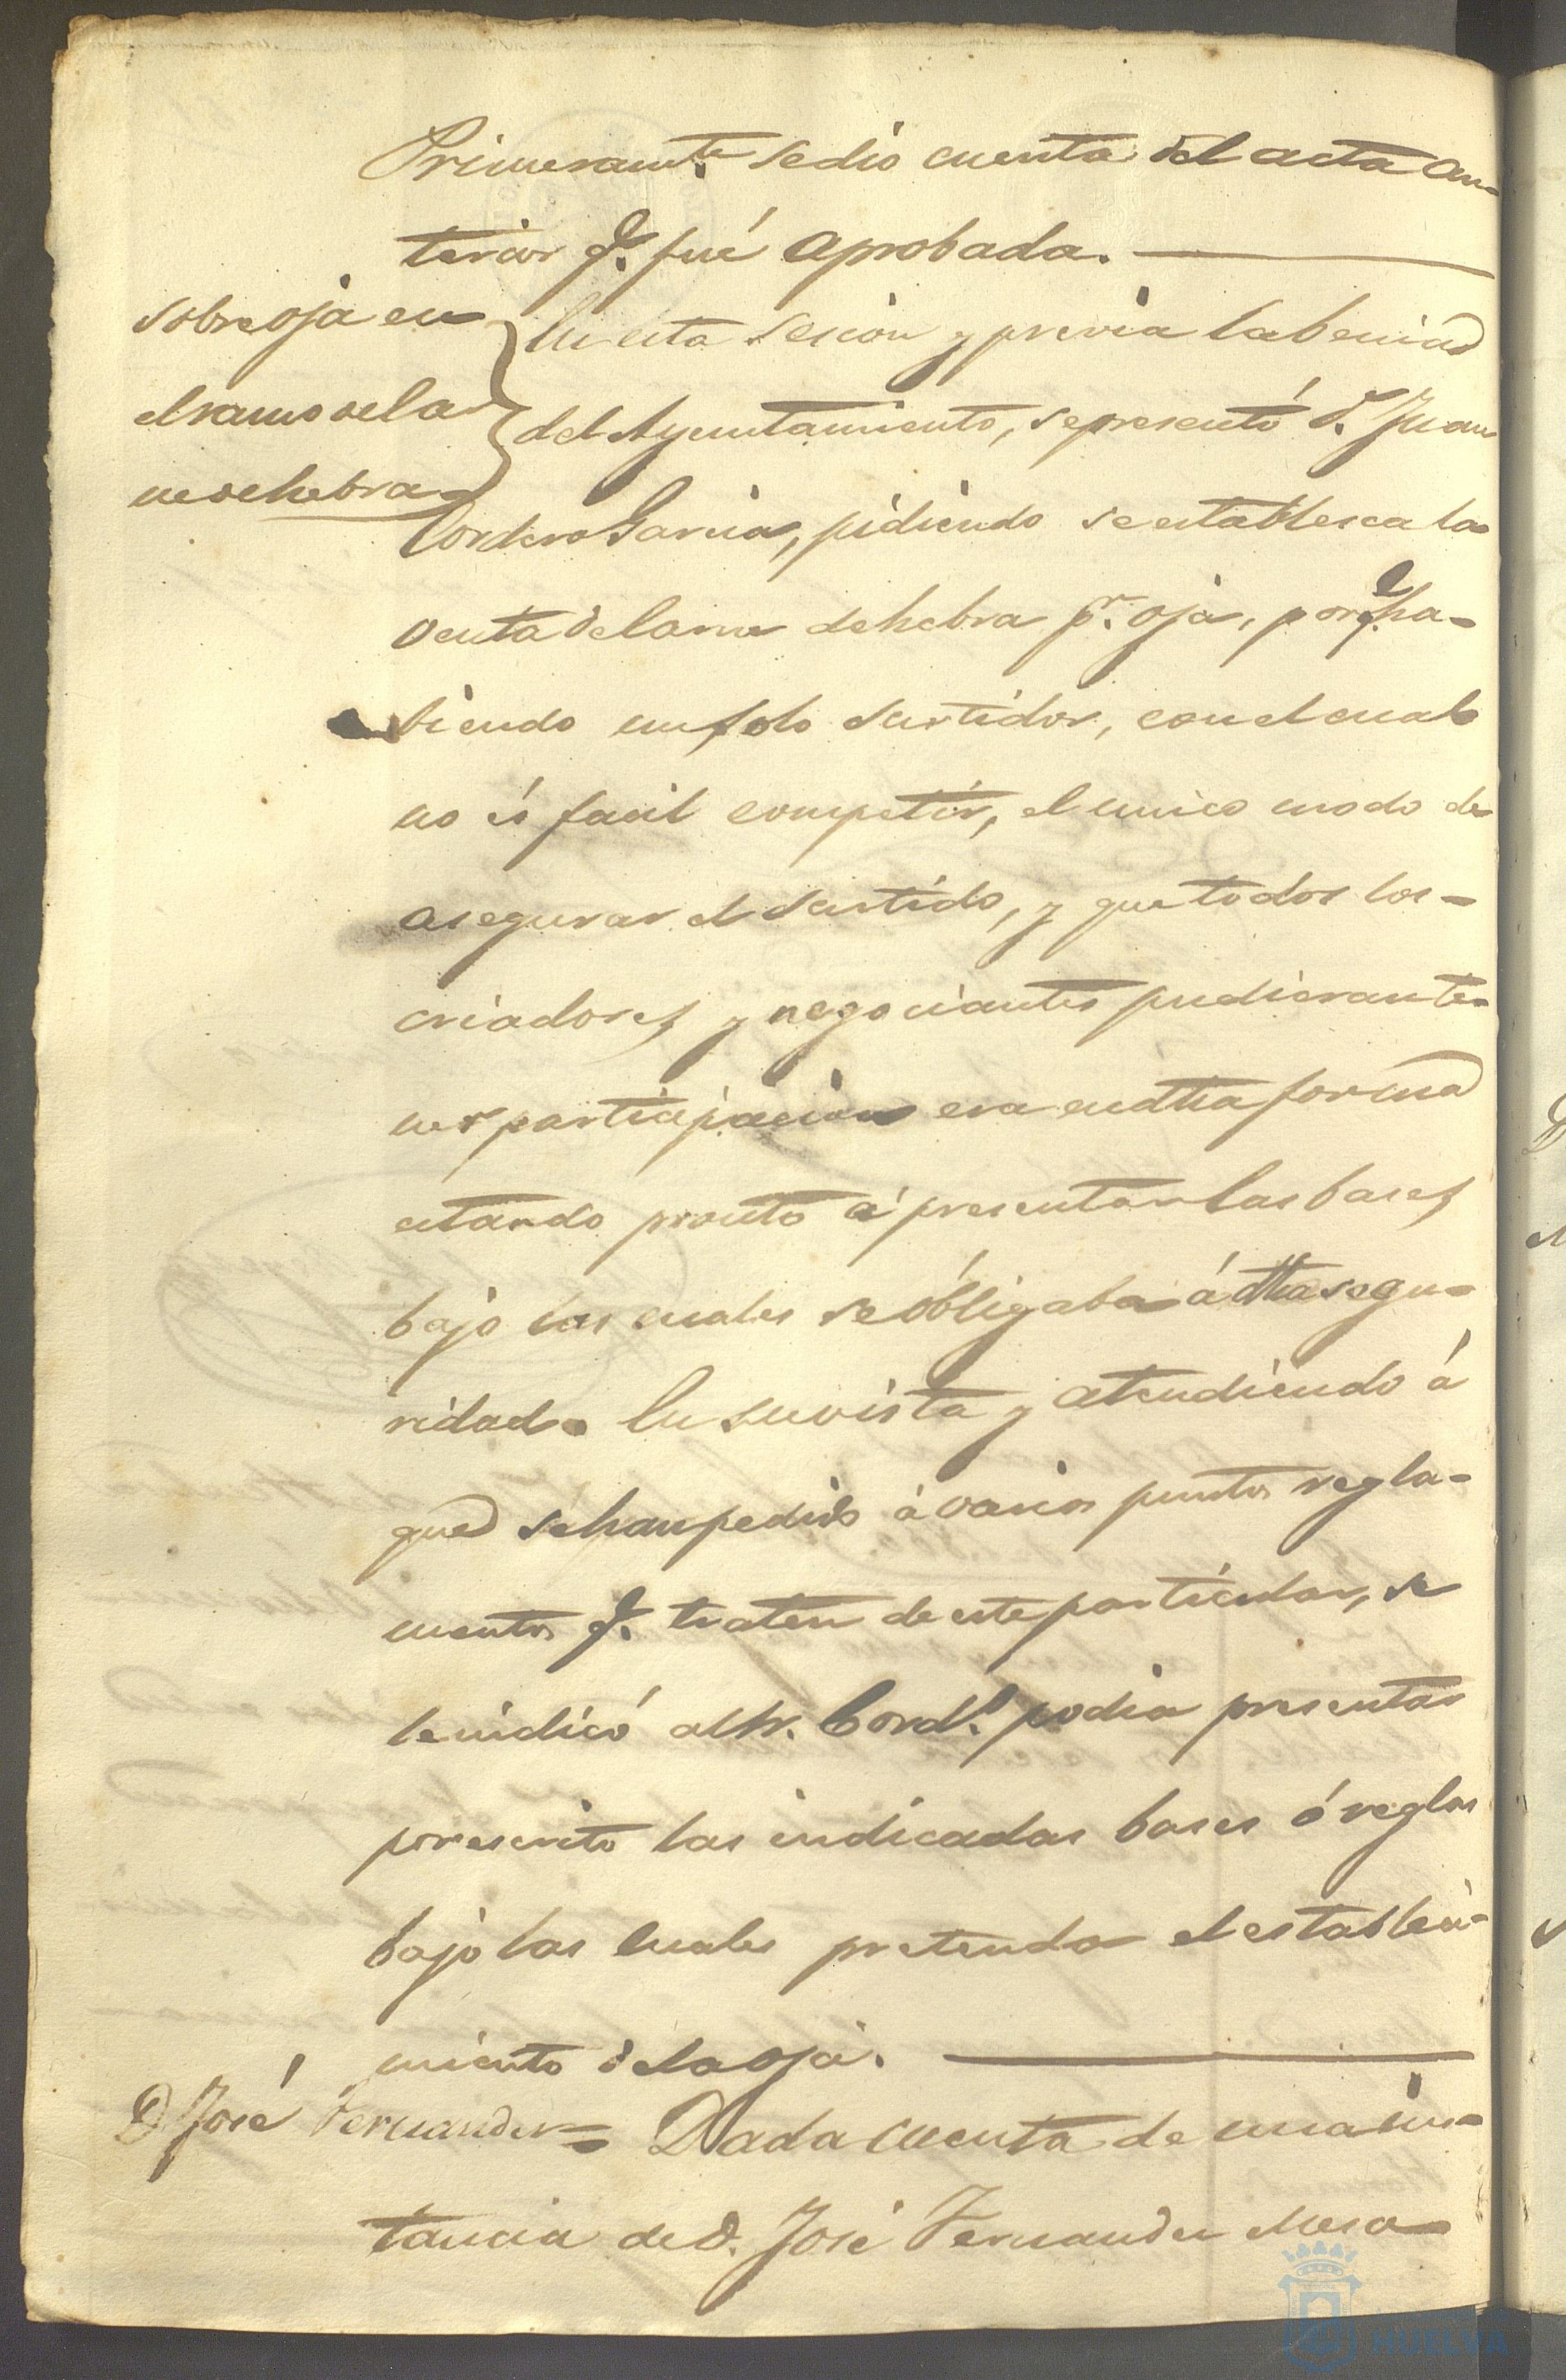 Primeramte. se dio cuenta del acta an-
terior q. fué aprobada.
sobre oja en
el ramo de la
ne de hebra
En esta sesion y previa la benia
del Ayuntamiento, se presentó d. Juan
Cordero Garcia, pidiendo se establesca la
venta de la ne de hebra pr. oja, porq. ha-
biendo un solo surtidor, con el cual
no és facil competir, el unico modo de
asegurar el surtido, y que todos los-
criadores y negociantes pudieran te-
ner participacion era en dha forma
estando pronto á presentar las bases
bajo las cuales se óbligaba á dha segu-
ridad. En su vista y atendiendo á
que se han pedido á varios puntos regla-
mentos q. traten de este particular, se
le indicó al Sr. Cordo. podia presentar
por escrito las indicadas bases ó reglas
bajo las cuales pretenda el estableci-
miento de la oja.
D José Fernandez=
Dada cuenta de una ins-
tancia de d. José Fernandez Mesa
HUELVA